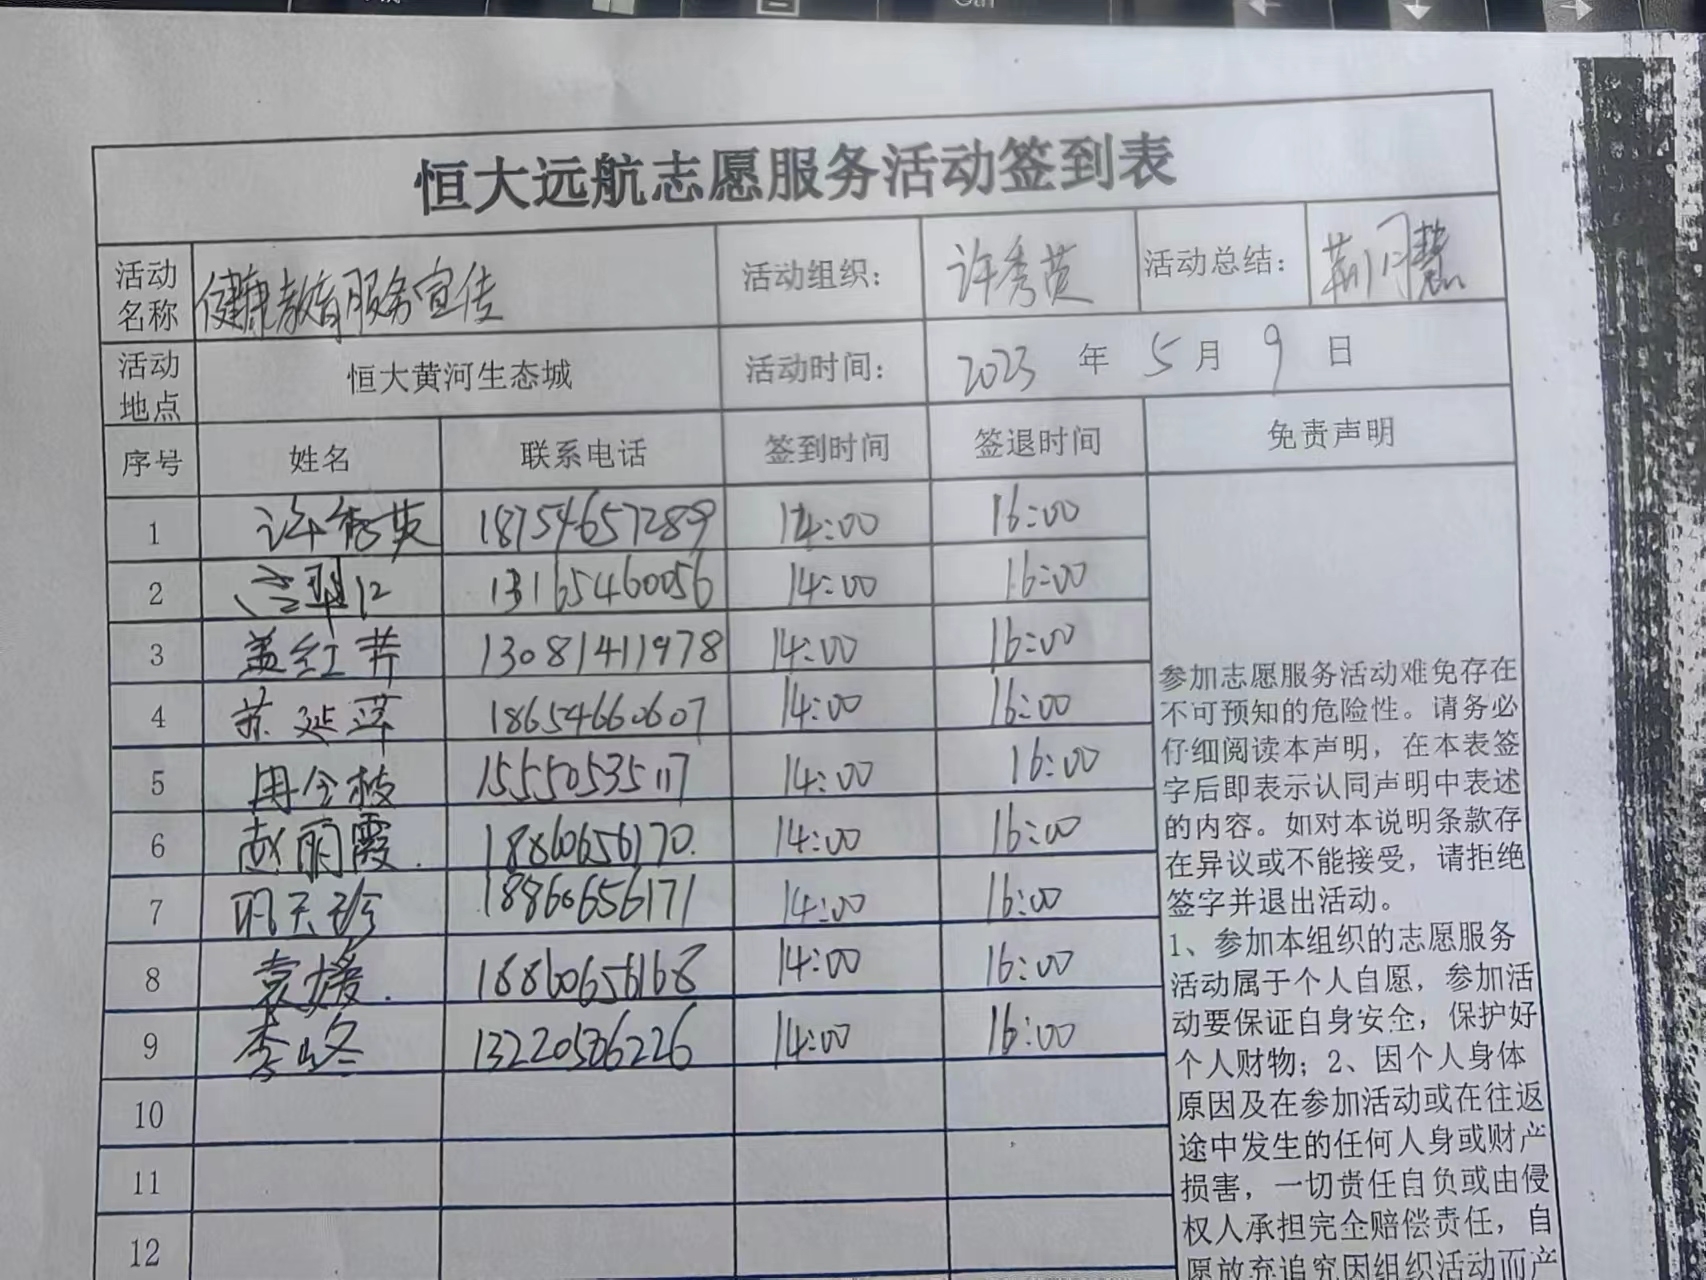 Ctrl
恒大远航志愿服务活动签到表
活动名称 健康教育服务宣传 活动组织： 许秀英 活动总结： 荆门慧
活动地点 恒大黄河生态城 活动时间： 2023 年 5 月 9 日
序号 姓名 联系电话 签到时间 签退时间 免责声明
1 许秀英 18754657289 14:00 16:00
2 13165460056 14:00 16:00
3 盖红芹 13081411978 14:00 16:00
4 苏延萍 18654660607 14:00 16:00
5 15550535117 14:00 16:00
6 赵丽霞 18860656170 14:00 16:00
7 18860656171 14:00 16:00
8 袁媛 18860656168 14:00 16:00
9 李峰 13220506226 14:00 16:00
10
11
12
参加志愿服务活动难免存在
不可预知的危险性。请务必
仔细阅读本声明，在本表签
字后即表示认同声明中表述
的内容。如对本说明条款存
在异议或不能接受，请拒绝
签字并退出活动。
1、参加本组织的志愿服务
活动属于个人自愿，参加活
动要保证自身安全，保护好
个人财物；2、因个人身体
原因及在参加活动或在往返
途中发生的任何人身或财产
损害，一切责任自负或由侵
权人承担完全赔偿责任，自
愿放弃追究因组织活动而产